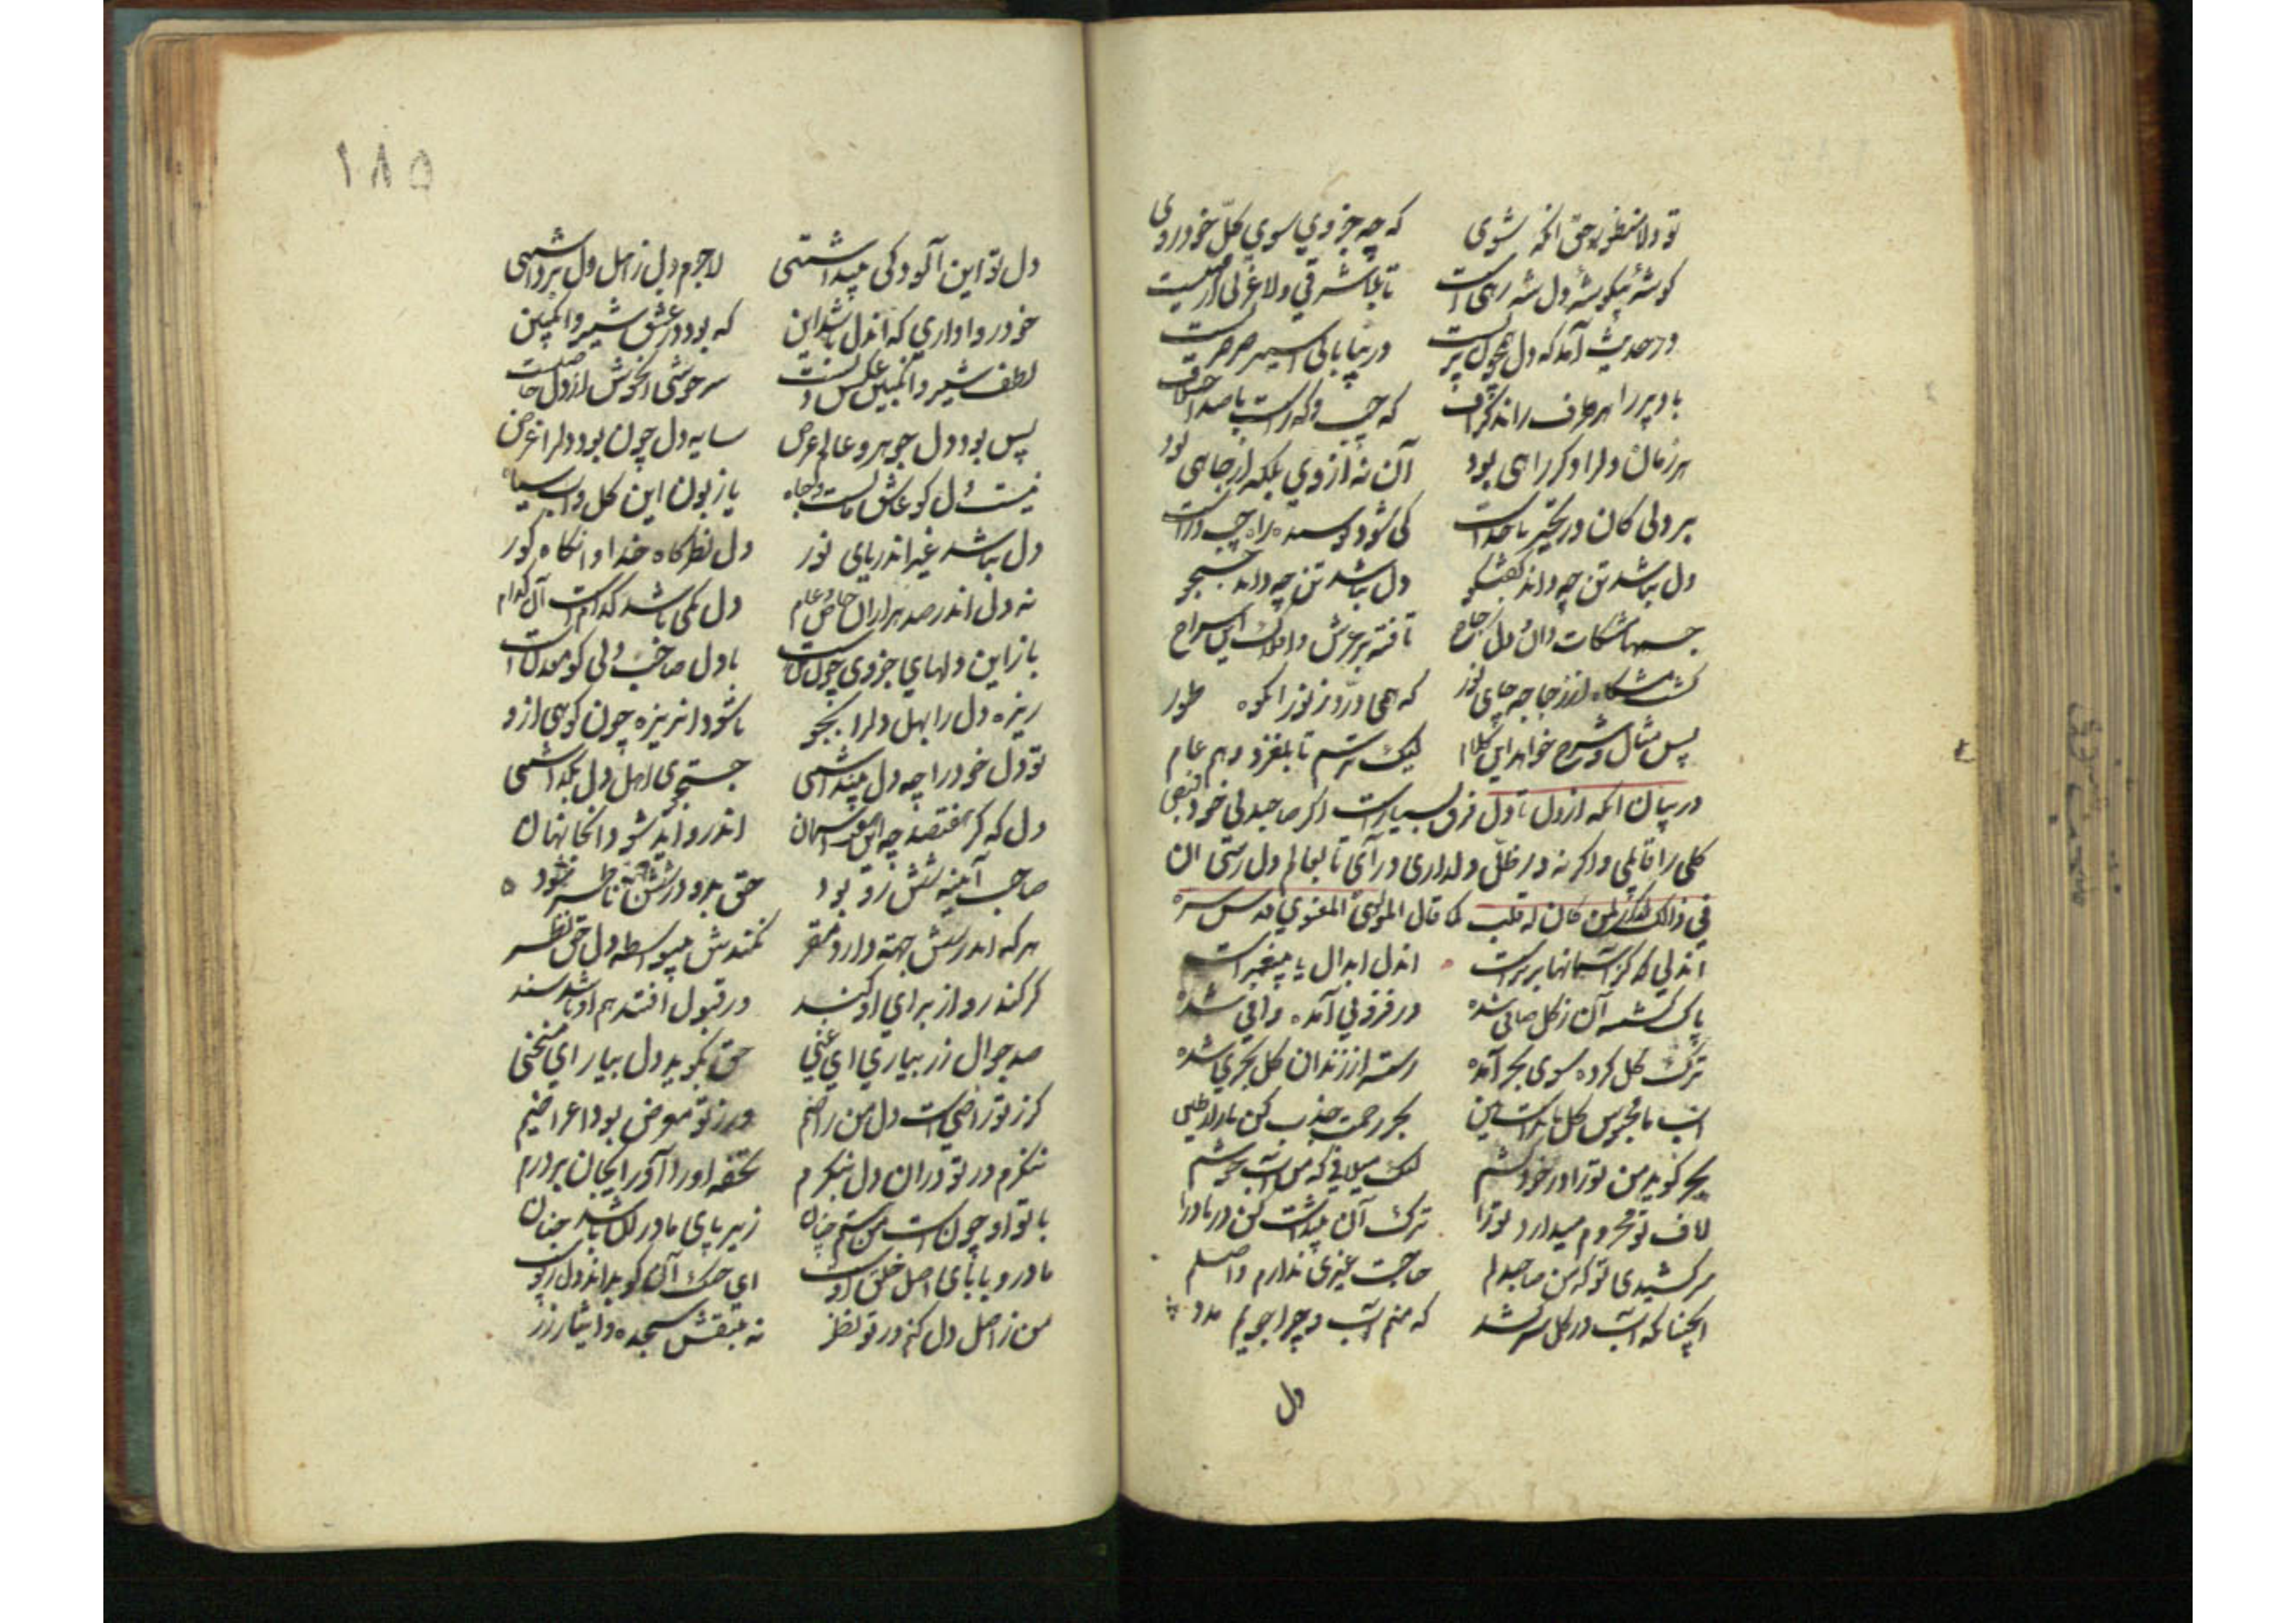 تو دلا منظور حق آنگه شوی که چه جزوي سوي کلّ خود روی
گوشهٔ بیگوشهٔ دل شه رهی است تاب لا شرقی ولا غربی از مهیست
در حدیث آمد که دل همچون پرست در بیابانی اسیر صرصرست
باد پر را هر طرف راند گزاف که چپ و که راست با صد اختلاف
هر زمان دلرا دکر راهی بود آن نه از وي بلکه از جاهی بود
دل نباشد تن چه داند گفتگو دل نباشد تن چه داند جستجو
پس مثال و شرح خواهد این کلام لیک ترسم تا نلغزد وهم عام
در بیان انکه از دل تا دل فرق بسیارست اکر صاحبدلی خود فیض
کلی را قابلی واکر نه در ظلّ دلداری درآی تا بعالم دل رسی ان
في ذالک لذکری لمن کان له قلب کما قال المولوی المعنوي قدس سره
آندلی که کز آسمانها برترست آندل ابدال یا پیغمبرست
پاک کشته آن ز کل صافی شده در فزونی آمده وافی شده
ترک کل کرده سوی بحر آمده رسته از زندان کل بحري شده
آب ما محبوس کل ماندست هین بحر رحمت جذب کن مارا ز طین
بحر کوید من ترا در خود کشم لیک میلافی که من آب خوشم
لاف تو محروم میدارد ترا ترک آن پنداشت کن در ما درا
سر کشیدی تو که من صاحبدلم حاجت غیری ندارم واصلم
آنچنانکه آب در کل سر کشد که منم آب و چرا جویم مدد
دل
١٨٥
دل تو این آلوده کی پنداشتی لاجرم دل ز اهل دل برداشتی
خود روا داري که آندل باشد این که بود در عشق شیر وانکبین
لطف شیر وانکبین عکس دلست هر خوشی آنخوش از دل حاصلست
پس بود دل جوهر و عالم عرض سایه دل چون بود دلرا غرض
نیست دل کو عاشق مالست وجاه یا زبون این کل وآب سیاه
دل نباشد غیر آندریای نور دل نظرکاه خدا وانکاه کور
نه دل اندر صد هزاران خاص وعام دل یکی باشد کدامست آن کدام
باز این دلهاي جزوي چون تنست با دل صاحب دلی کو معدنست
ریزه دل را بهل دلرا بجو تا شود آن ریزه چون کوهی ازو
تو دل خود را چه دل پنداشتی جستجوی اهل دل بکذاشتی
دل که کر هفتصد چو این هفت آسمان اندرو آید شود انجا نهان
صاحب آیینه شش رو بود حق بدو در شش جهت ناظر شود
هر که اندر شش جهة دارد مقر نکندش بیواسطه دل حق نظر
کر کند رد از برای او کند در قبول افتد هم او باشد سند
صد جوال زر بیاري اي غني حق بکوید دل بیار اي منحنی
کر ز تو راضیست دل من راضیم ور ز تو معرض بود اعراضیم
ننکرم در تو دران دل بنکرم تحفه اورا آور ایجان بر درم
با تو او چونست من هستم چنان زیر پای مادران باشد جنان
مادر و بابای اصل خلق اوست ای خنک آنکو بداند دل ز پوست
من ز اهل دل کنم در تو نظر نه بنقش سجده و ایثار زر